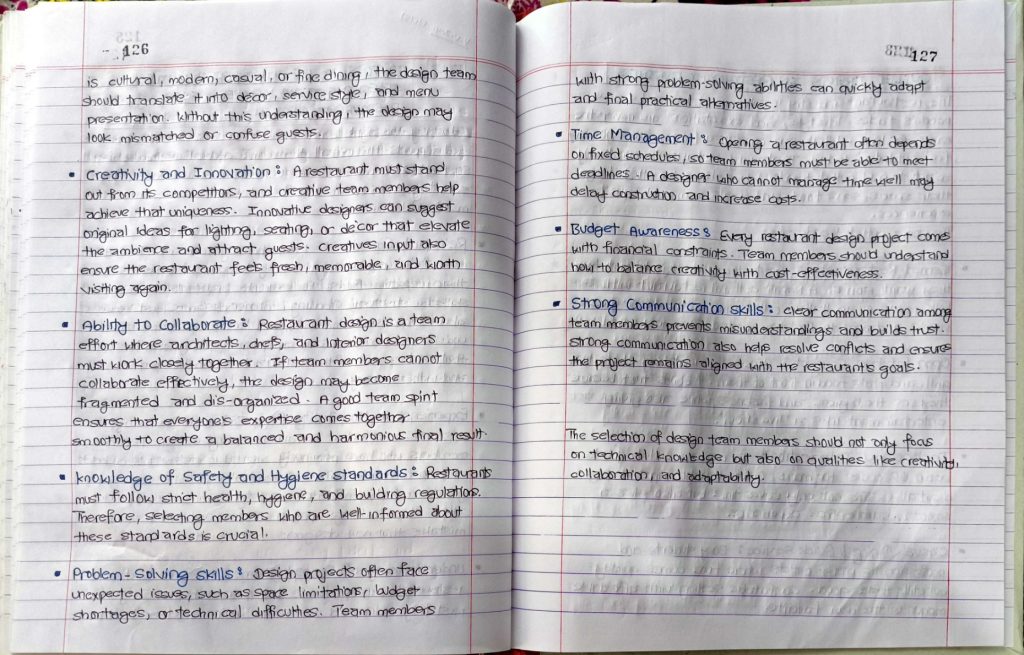 126
is cultural, modern, casual, or fine dining, the design team
should translate it into décor, service style, and menu
presentation. Without this understanding, the design may
look mismatched or confuse guests.
• Creativity and Innovation : A restaurant must stand
out from its competitors, and creative team members help
achieve that uniqueness. Innovative designers can suggest
original ideas for lighting, seating, or décor that elevate
the ambience and attract guests. Creatives input also
ensure the restaurant feels fresh, memorable, and worth
visiting again.
• Ability to Collaborate : Restaurant design is a team
effort where architects, chefs, and interior designers
must work closely together. If team members cannot
collaborate effectively, the design may become
fragmented and dis-organized. A good team spirit
ensures that everyone's expertise comes together
smoothly to create a balanced and harmonious final result.
• Knowledge of Safety and Hygiene standards : Restaurants
must follow strict health, hygiene, and building regulations.
Therefore, selecting members who are well-informed about
these standards is crucial.
• Problem-Solving skills : Design projects often face
unexpected issues, such as space limitations, budget
shortages, or technical difficulties. Team members
127
with strong problem-solving abilities can quickly adapt
and final practical alternatives.
• Time Management : Opening a restaurant often depends
on fixed schedules, so team members must be able to meet
deadlines. A designer who cannot manage time well may
delay construction and increase costs.
• Budget Awareness : Every restaurant design project comes
with financial constraints. Team members should understand
how to balance creativity with cost-effectiveness.
• Strong Communication skills : clear communication among
team members prevents misunderstandings and builds trust.
strong communication also help resolve conflicts and ensures
the project remains aligned with the restaurant's goals.
The selection of design team members should not only focus
on technical knowledge but also on qualities like creativity,
collaboration, and adaptability.